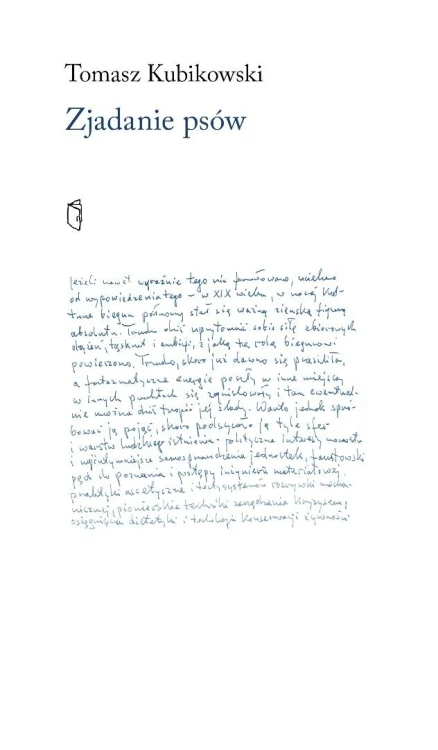 Tomasz Kubikowski
Zjadanie psów
Jeżeli nawet wyraźnie tego nie formułowano, uciekano
od wypowiedzenia tego – w XIX wieku, w naszej kul-
turze biegun północny stał się ważną ziemską figurą
absolutu. Trudno dziś uprzytomnić sobie siłę zbiorowych
dążeń, tęsknot i ambicji, z jaką tę rolę biegunowi
powierzono. Trudno, skoro już dawno się przesiliła,
a fantazmatyczne energie poszły w inne miejsca,
w innych punktach się zogniskowały i tam ewentual-
nie można dziś tropić jej ślady. Warto jednak spró-
bować ją pojąć, skoro podsycało ją tyle sfer
i warstw ludzkiego istnienia: polityczne interesy mocarstw
i najintymniejsze samosprawdzenia jednostek, faustowski
pęd do poznania i postępy inżynierii materiałowej,
praktyki ascetyczne i rozwój
nicznej, pionierskie techniki zarządzania kryzysem,
osiągnięcia dietetyki i technologii konserwacji żywności